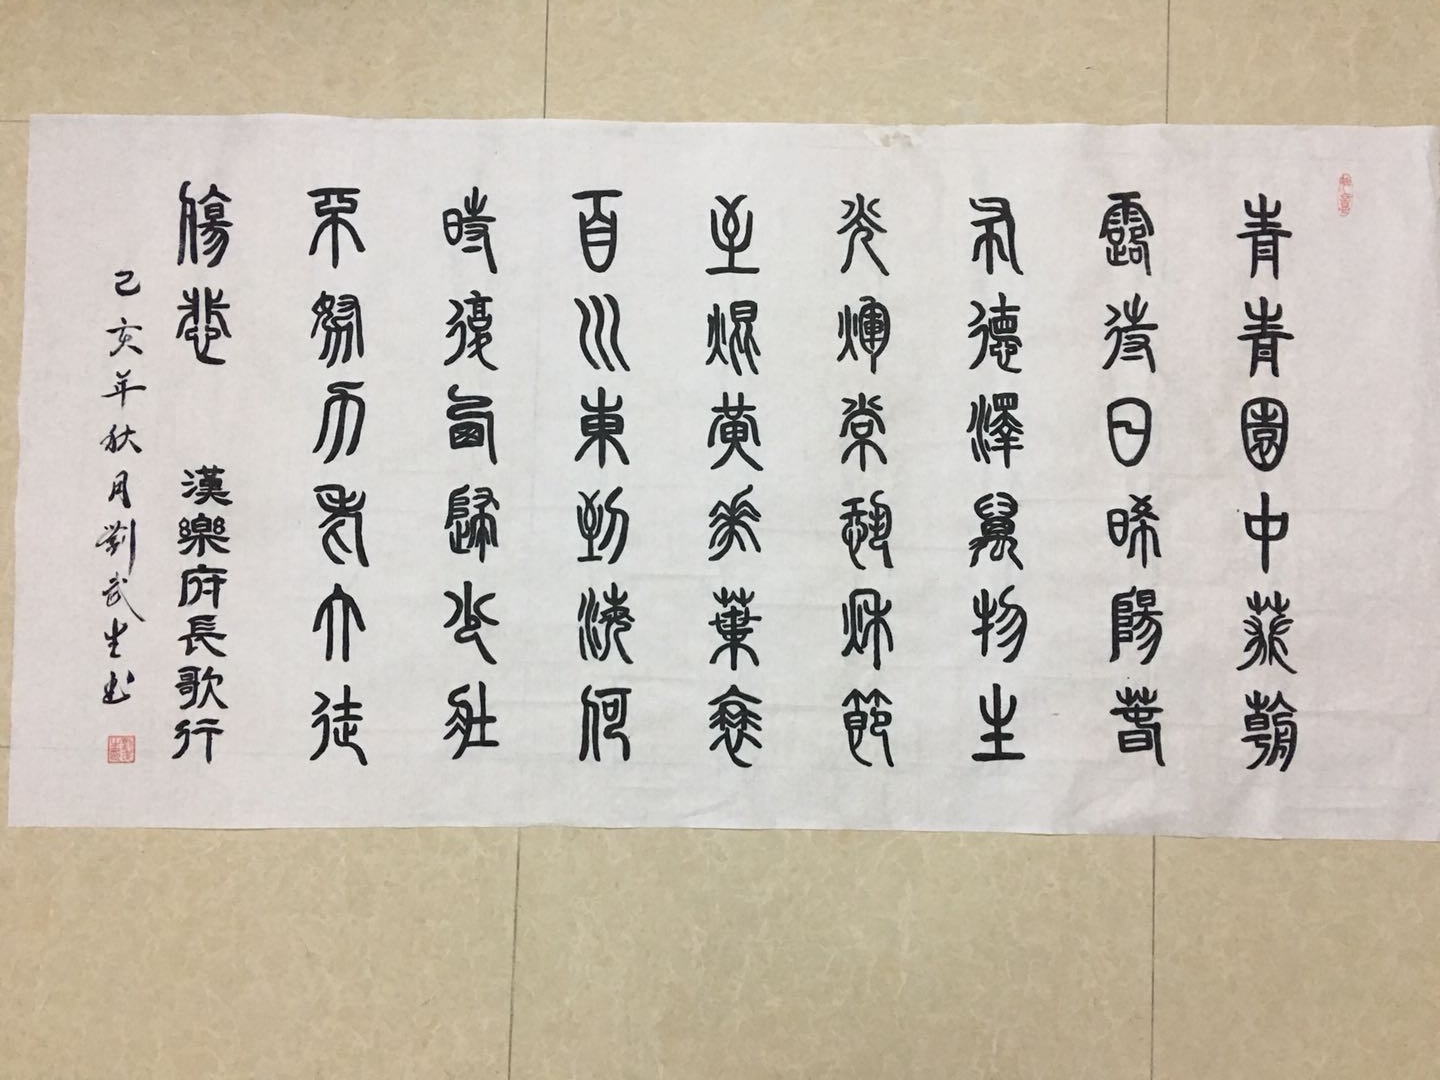 青青園中葵朝
露待日晞陽春
布德澤萬物生
光輝常恐秋節
至焜黃華葉衰
百川東到海何
時復西歸少壯
不努力老大徒
傷悲 漢樂府長歌行
己亥年秋月劉武生书